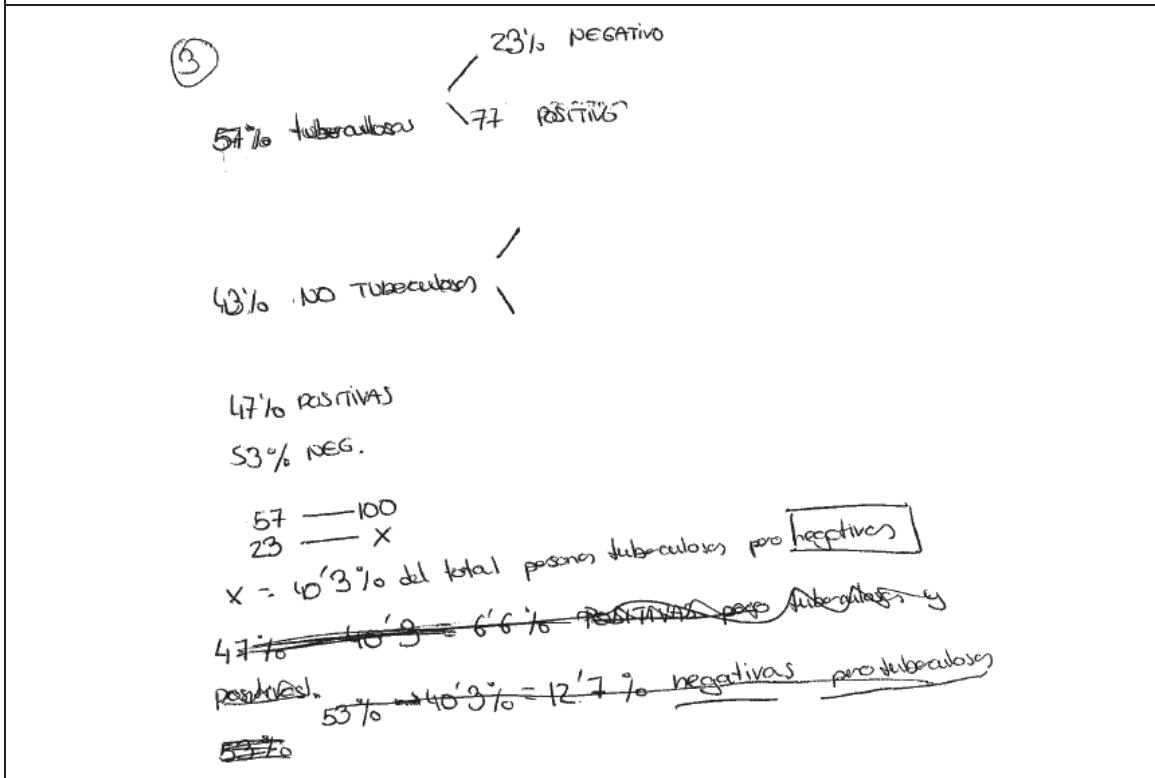 3
23% NEGATIVO
57% tuberculosas
77 POSITIVO
43% NO TUBeculosas
47% POSITIVAS
53% NEG.
57 — 100
23 — X
X = 40'3% del total personas tubeculosas pero negativas
47% - 40'3 = 6'6% POSITIVAS pero tuberculosas y
positivas.
53% - 40'3% = 12'7% negativas pero tubeculosas
53%